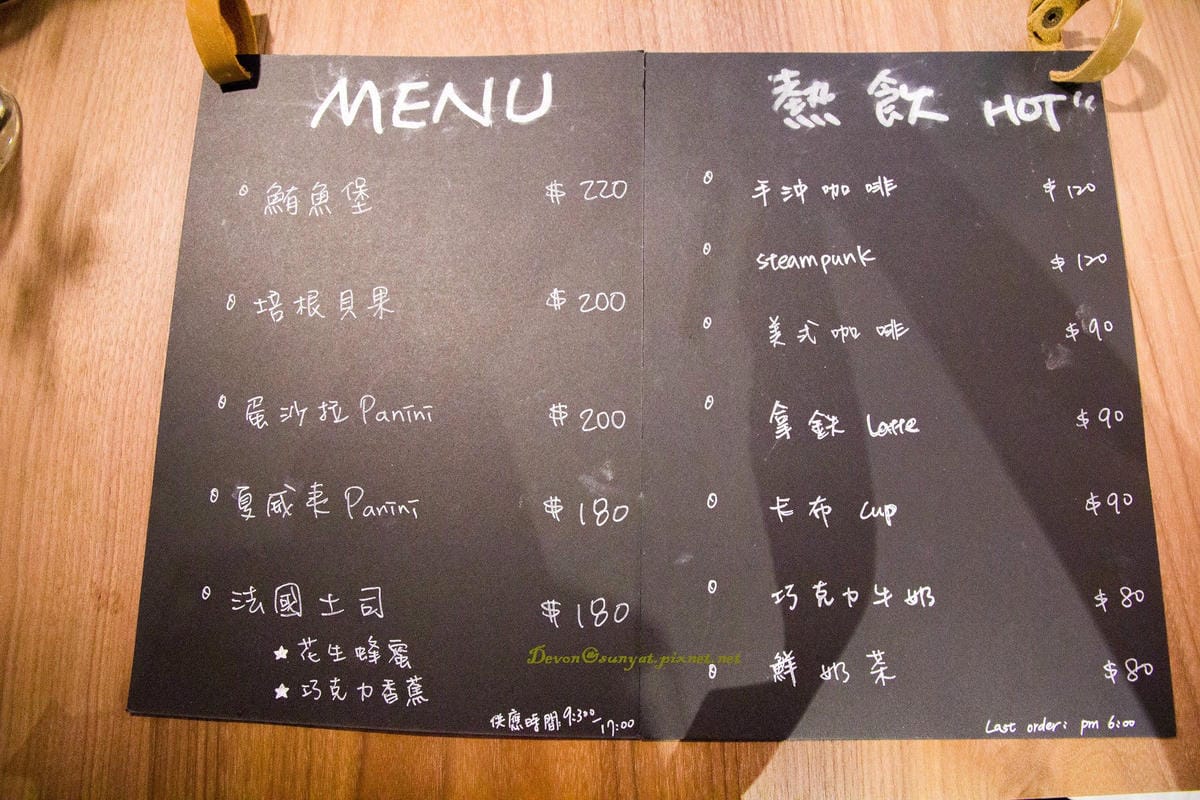 MENU
鮪魚堡 $220
培根貝果 $200
蛋沙拉 Panini $200
夏威夷 Panini $180
法國土司 $180
★ 花生蜂蜜
★ 巧克力香蕉
供應時間:9:300-17:00
Devon@sunyat.pixnet.net
熱飲 HOT
手沖咖啡 $120
steampunk $120
美式咖啡 $90
拿鉄 Latte $90
卡布 cup $90
巧克力牛奶 $80
鮮奶茶 $80
Last order: pm 6:00